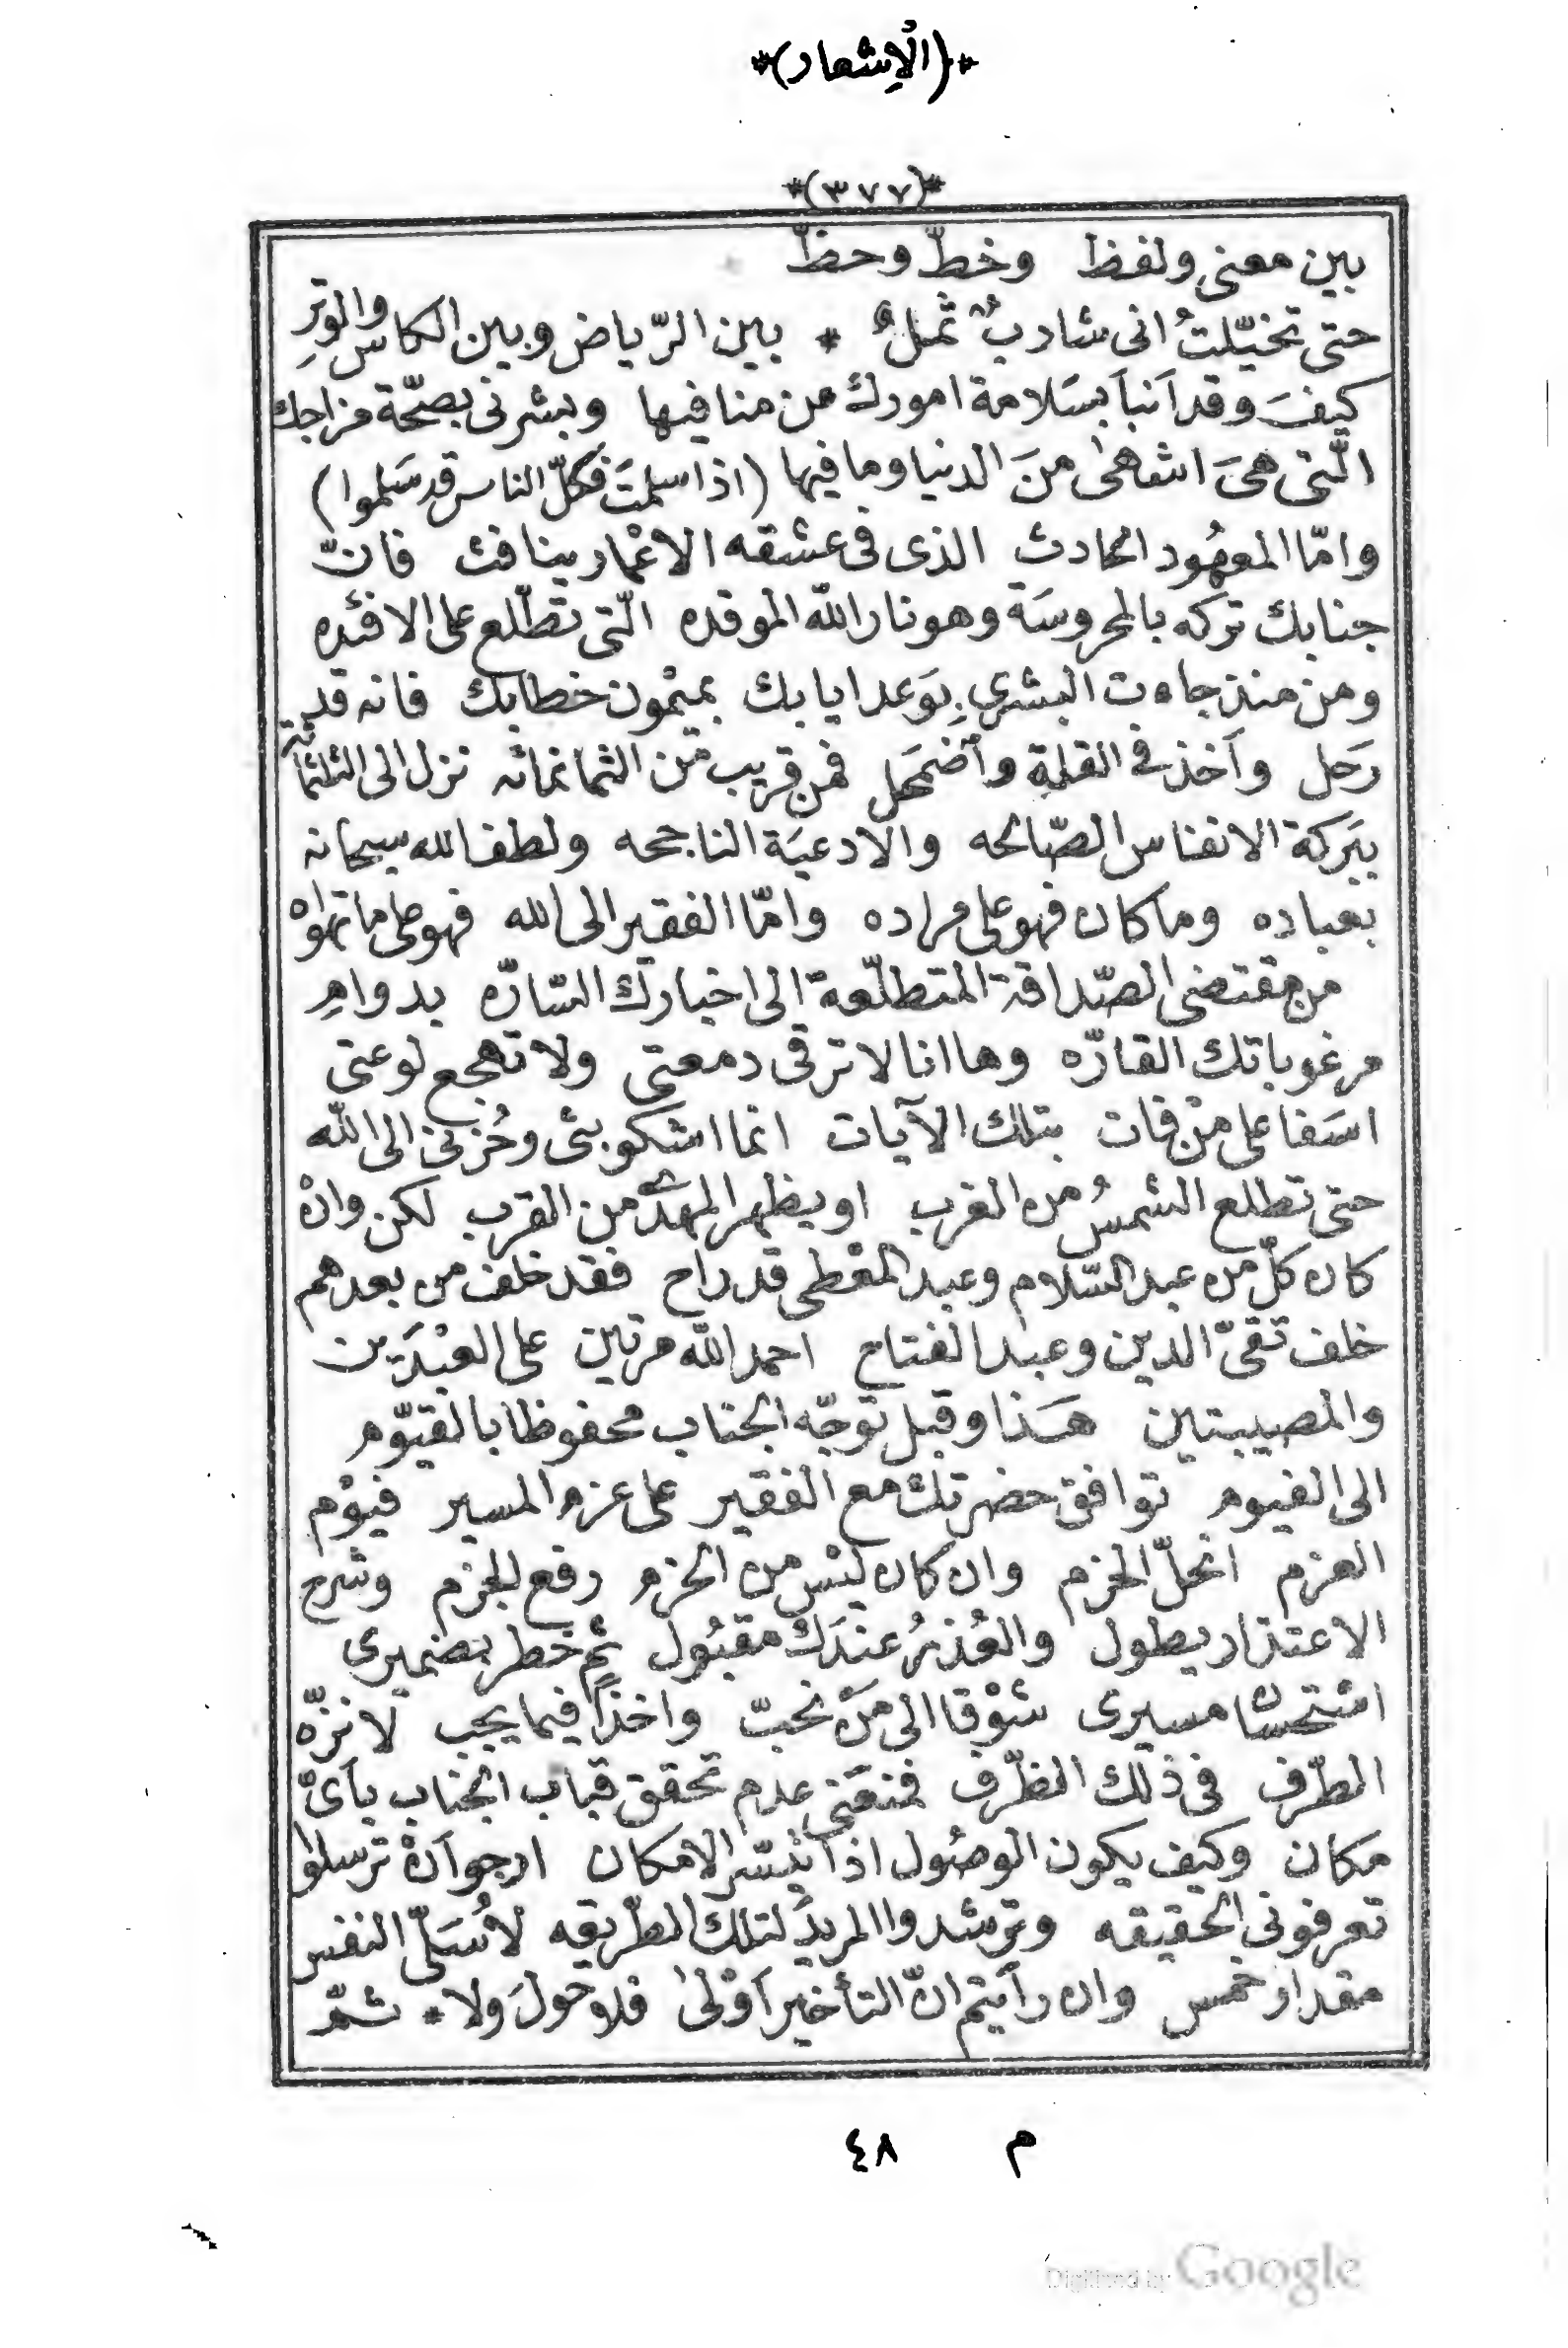 *(الإشعار)*
*(٣٧٧)*
بين معنى ولفظ وخطّ وحظّ
حتى تخيّلتُ انى شاربٌ ثملٌ * بين الرّياض وبين الكاس والوترِ
كيفَ وقد اَنبأ بسَلامة امورك من منافيها وبشرنى بصحّة مزاجك
الّتى هىَ اشهى منَ الدنيا وما فيها (اذا سلمتَ فكلّ الناس قد سَلموا)
وامّا المعهُود الحادث الذى فى عشقه الاغمار ينافث فانّ
جنابك تركه بالمحروسَة وهو نار الله الموقده الّتى تطّلع على الافئده
ومن منذ جاءت البشرى بِوَعد ايابك بميْمون خطابك فانه قد
رَحل وآخذ فى القلة وأضمَحل فمن قريب من الثمانمائه نزل الى الثلثمائة
ببَركة الانفاس الصّالحه والادعيَة الناجحه ولطف الله سبحانه
بعباده وما كان فهو على مراده وامّا الفقير الى الله فهو على ما تهواه
من مقتضى الصّداقة المتطلّعة الى اخبارك السّارّه بدوامِ
مرغوباتك القارّه وها انا لا ترقى دمعتى ولا تهجع لوعتى
اسَفا على منْ فات بتلك الآيات انما اشكو بثى وحُزنى الى الله
حتى تطلع الشمسُ من الغرب او يظهر المهدى من القرب لكن وانْ
كان كلّ من عبد السّلام وعبد المعْطى قد راح فقد خلف من بعدهم
خلف تقىّ الدين وعبد الفتاح احمد الله مرتين على العبْدَين
والمصيبتين هَذا وقبل توجّه الجناب محفوظا بالقيّوم
الى الفيوم توافق حضرتك مع الفقير على عزم المسير فيوْم
العزم انحلّ الحزم وان كان ليْس من الحزم رفع الجزم وشرح
الاعتذار يطول والعُذرُ عندَك مقبُول ثمّ خطر بضميرى
اسْتحسان مسيرى شوْقا الى مَنْ نحبّ واخذًا فيما يجب لانزّه
الطّرف فى ذلك الظّرف فمنعَنى عدم تحقق قباب الجناب باَىّ
مكان وكيف يكون الوصُول اذا تيسّر الامكان ارجو اَنْ ترسلوا
تعرفونى الحقيقه وترشدوا المريدَ لتلك الطّريقه لاُسَلّى النفس
مقدار خمس وان رأيتم انّ التأخير اَوْلى فلا حولَ ولا * ثمّ
م ٤٨
Digitized by Google